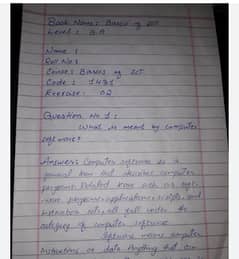 Book Name: Basics of ICT
Level: B.A
Name:
Roll No:
Course: Basics of ICT
Code: 1431
Exercise: 02
Question No 1:
What is meant by computer
software?
Answer: Computer software is a
general term that describes computer
programs. Related terms such as soft-
ware programs, applications, scripts, and
instruction sets all fall under the
category of computer software
Software means computer
instructions or data. Anything that can